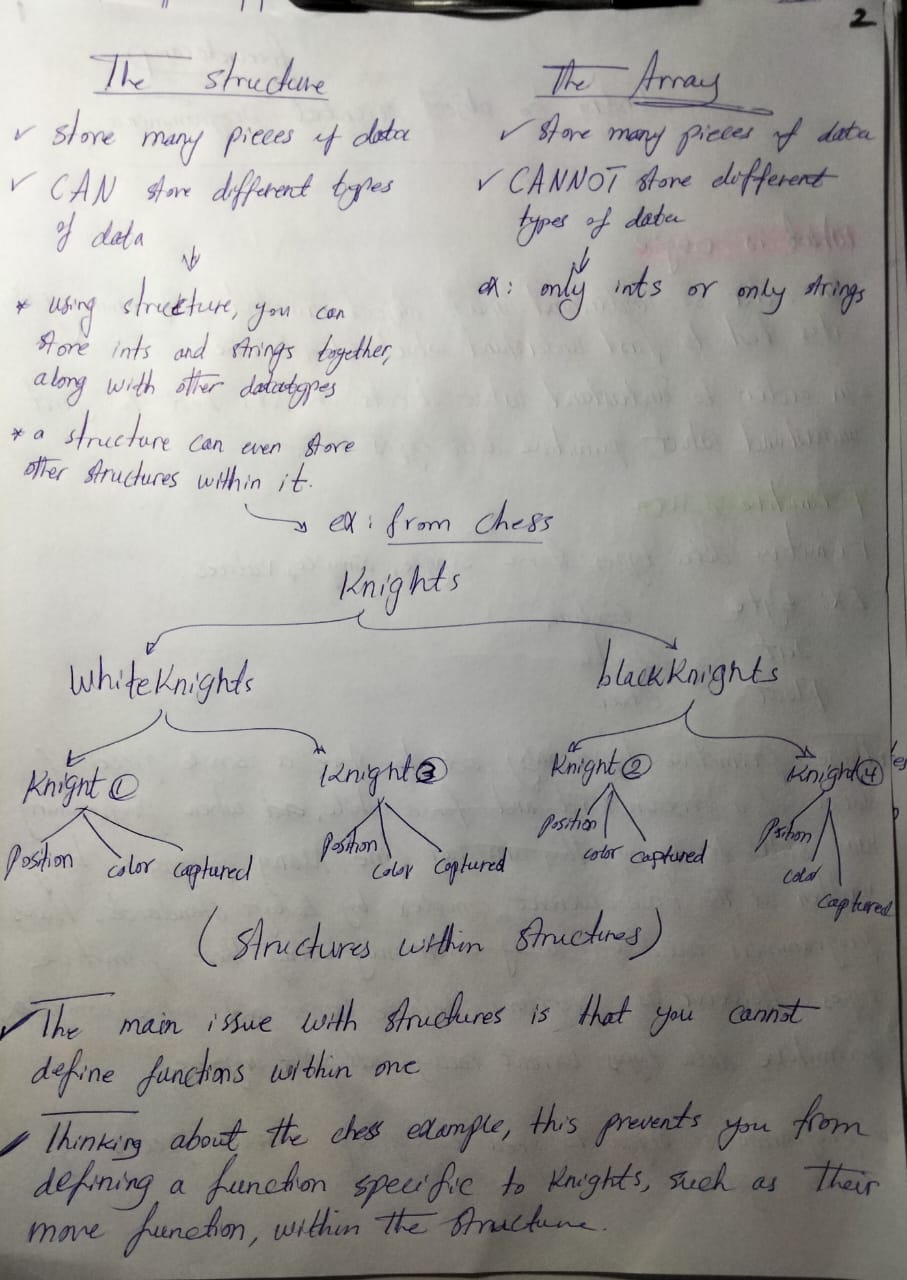 2
The structure
✓ store many pieces of data
✓ CAN store different types
of data
* using structure, you can
store ints and strings together,
along with other datatypes
* a structure can even store
other structures within it.
The Array
✓ store many pieces of data
✓ CANNOT store different
types of data
ex: only ints or only strings
ex: from chess
Knights
whiteKnights
blackKnights
Knight ①
Knight ③
Knight ②
Knight ④
Position color captured
Position color captured
Position color captured
Position color captured
(structures within structures)
✓ The main issue with structures is that you cannot
define functions within one
Thinking about the chess example, this prevents you from
defining a function specific to Knights, such as their
move function, within the structure.